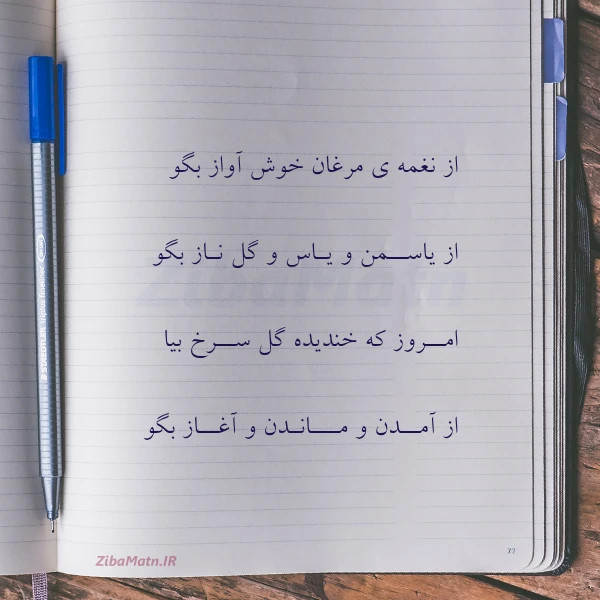 از نغمه ی مرغان خوش آواز بگو
از یاســـمن و یــاس و گل نــاز بگو
امـــروز که خندیده گل ســـرخ بیا
از آمـــدن و مـــانـدن و آغـــاز بگو
ZibaMatn.IR